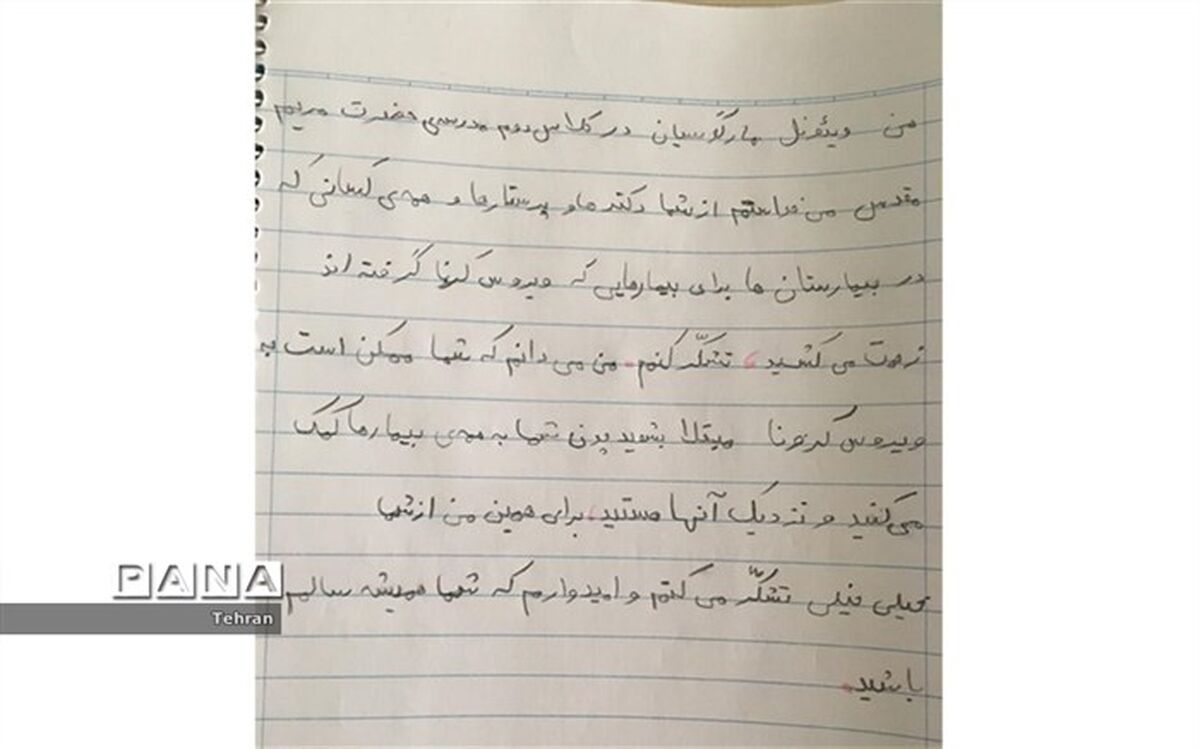 من ویئونل مارگوسیان در کلاس دوم مدرسه‌ی حضرت مریم
مقدس می خواستم از شما دکترها و پرستارها و همه‌ی کسانی که
در بیمارستان ها برای بیمارهایی که ویروس کرونا گرفته اند
زحمت می کشید، تشکّر کنم. من می دانم که شما ممکن است به
ویروس کرونا مبتلا بشوید چون شما به همه‌ی بیمارها کمک
می کنید و نزدیک آنها هستید، برای همین من از شما
خیلی خیلی تشکّر می کنم و امیدوارم که شما همیشه سالم
باشید.
PANA
Tehran